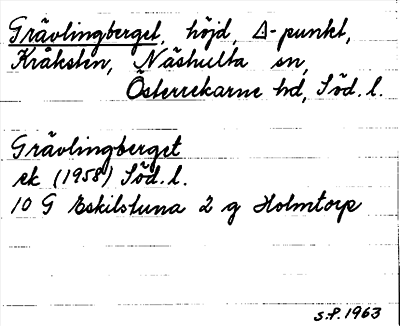 Grävlingberget, höjd, △-punkt,
Kråksten, Näshulta sn,
Österrekarne hd, Söd. l.
Grävlingberget
ek (1958) Söd. l.
10 G Eskilstuna 2 g Holmtorp
s.f. 1963